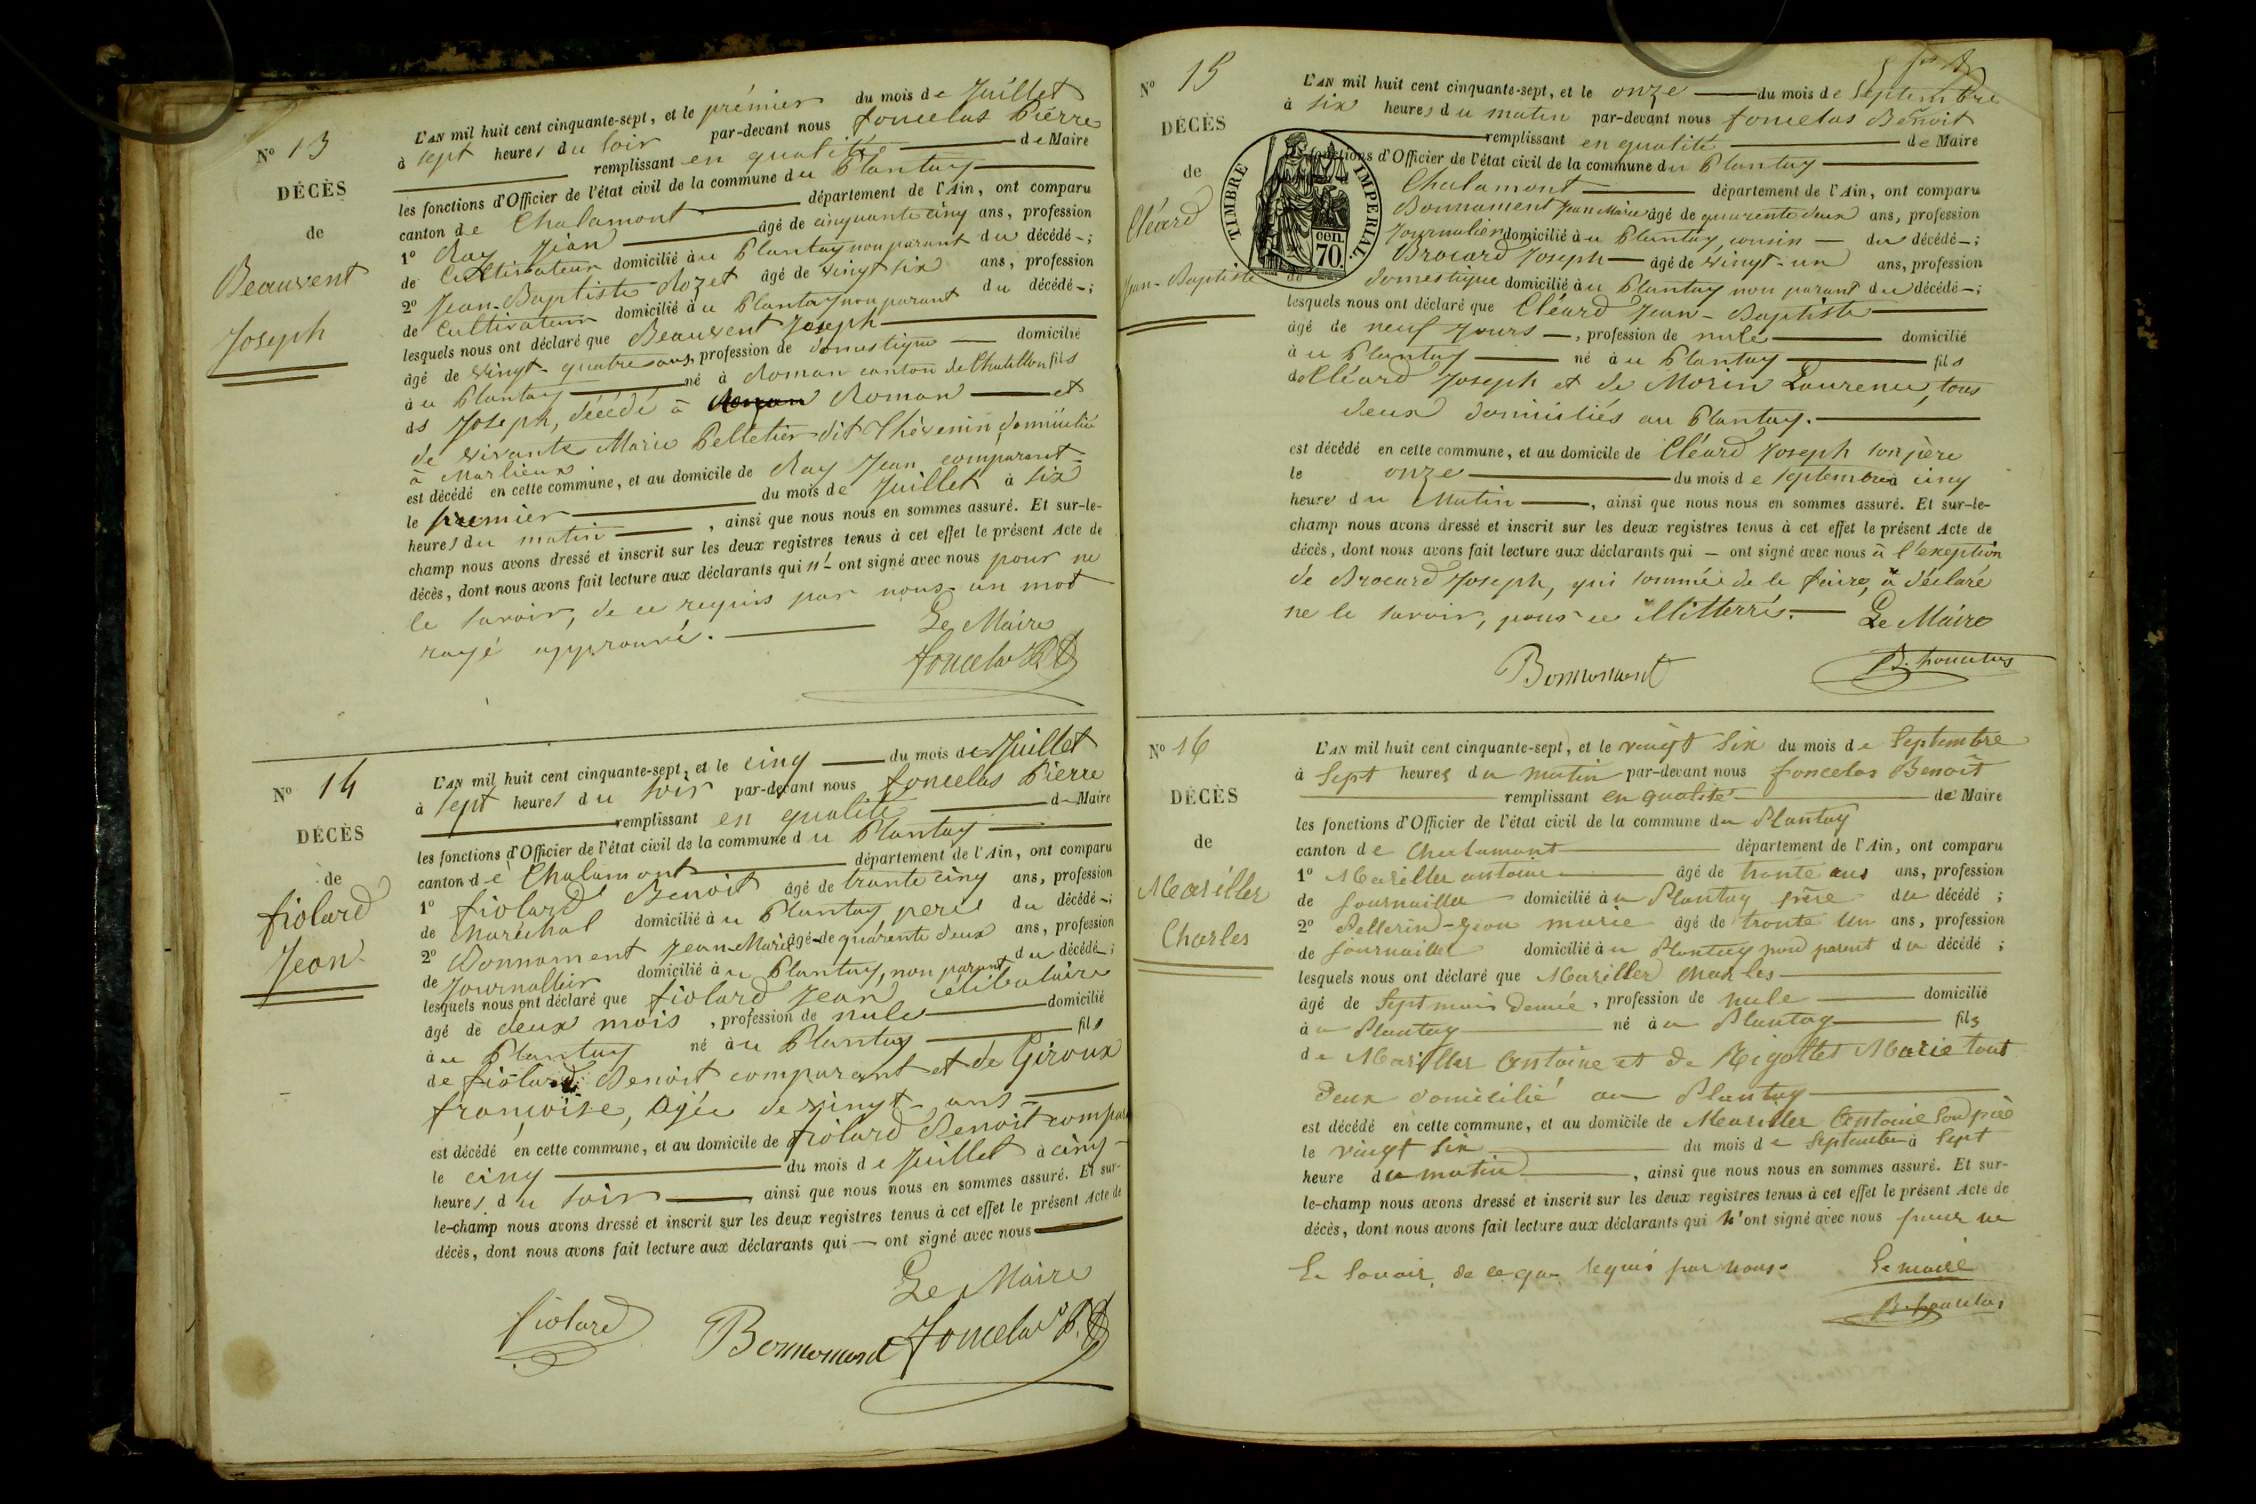 N° 13
DÉCÈS
de
Beauvent
Joseph
L'AN mil huit cent cinquante-sept, et le prémier du mois de Juillet
à sept heures du soir par-devant nous foncelas Pierre
remplissant en qualité de Maire
les fonctions d'Officier de l'état civil de la commune du Plantay
canton de Chalamont département de l'Ain, ont comparu
1° Ray Jean âgé de cinquante cinq ans, profession
de Cultivateur domicilié àu Plantay non parant du décédé ;
2° Jean-Baptiste Rozet âgé de vingt six ans, profession
de Cultivateur domicilié àu Plantay non parant du décédé ;
lesquels nous ont déclaré que Beauvent Joseph
âgé de vingt-quatre ans, profession de domestique domicilié
àu Plantay né à Roman canton de Chatillon fils
de Joseph, décédé à Roman et
de vivante Marie Pelletier dit Thévenin domicilié
à Marlieux
est décédé en cette commune, et au domicile de Ray Jean comparant
le premier du mois de Juillet à six
heures du matin , ainsi que nous nous en sommes assuré. Et sur-le-
champ nous avons dressé et inscrit sur les deux registres tenus à cet effet le présent Acte de
décès, dont nous avons fait lecture aux déclarants qui n'ont signé avec nous pour ne
le savoir, de ce requis par nous. un mot
rayé approuvé. Le Maire
foncelas P.
N° 14
DÉCÈS
de
fiolard
Jean
L'AN mil huit cent cinquante-sept, et le cinq du mois de Juillet
à sept heures du soir par-devant nous foncelas Pierre
remplissant en qualité de Maire
les fonctions d'Officier de l'état civil de la commune du Plantay
canton de Chalamont département de l'Ain, ont comparu
1° fiolard Benoit âgé de trante cinq ans, profession
de Maréchal domicilié àu Plantay, pere du décédé ;
2° Bonnament Jean-Marie âgé de quarente deux ans, profession
de Journallier domicilié àu Plantay, non parant du décédé ;
lesquels nous ont déclaré que fiolard Jean célibataire
âgé de deux mois , profession de nule domicilié
àu Plantay né àu Plantay fils
de fiolard Benoit comparant et de Giroux
françoise, Agée de vingt ans
est décédé en cette commune, et au domicile de fiolard Benoit compa
le cinq du mois de Juillet à cinq
heures du soir , ainsi que nous nous en sommes assuré. Et sur-
le-champ nous avons dressé et inscrit sur les deux registres tenus à cet effet le présent Acte de
décès, dont nous avons fait lecture aux déclarants qui ont signé avec nous
Le Maire
fiolard Bonnament foncelas P.
N° 15
DÉCÈS
de
Cléard
Jean-Baptiste
TIMBRE IMPÉRIAL
70 cen.
L'AN mil huit cent cinquante-sept, et le onze du mois de Septembre
à six heures du matin par-devant nous foncelas Benoit
remplissant en qualité de Maire
fonctions d'Officier de l'état civil de la commune du Plantay
Chalamont département de l'Ain, ont comparu
Bonnament Jean Marie âgé de quarente deux ans, profession
Journalier domicilié àu Plantay cousin du décédé ;
Brocard Joseph âgé de vingt-un ans, profession
de domestique domicilié àu Plantay non parant du décédé ;
lesquels nous ont déclaré que Cléard Jean-Baptiste
âgé de neuf jours , profession de nule domicilié
àu Plantay né àu Plantay fils
de Cléard Joseph et de Morin Laurence, tous
deux domiciliés au Plantay.
est décédé en cette commune, et au domicile de Cléard Joseph son père
le onze du mois de septembre à cinq
heures du Matin , ainsi que nous nous en sommes assuré. Et sur-le-
champ nous avons dressé et inscrit sur les deux registres tenus à cet effet le présent Acte de
décès, dont nous avons fait lecture aux déclarants qui ont signé avec nous à l'exeption
de Brocard Joseph, qui sommé de le faire, a déclaré
ne le savoir, pour ce illitterrés. Le Maire
Bonnament B. foncelas
N° 16
DÉCÈS
de
Mariller
Charles
L'AN mil huit cent cinquante-sept, et le vingt six du mois de Septembre
à Sept heures du matin par-devant nous foncelas Benoît
remplissant en qualité de Maire
les fonctions d'Officier de l'état civil de la commune du Plantay
canton de Chalamont département de l'Ain, ont comparu
1° Mariller antoine âgé de trante ans ans, profession
de Journailler domicilié àu Plantay père du décédé ;
2° Pellerin-Jean marie âgé de trante un ans, profession
de Journailler domicilié àu Plantay nond parent du décédé ;
lesquels nous ont déclaré que Mariller Charles
âgé de Sept mois demie , profession de nule domicilié
àu Plantay né àu Plantay fils
de Mariller Antoine et de Rigottet Marie tout
Deux domicilié au Plantay
est décédé en cette commune, et au domicile de Mariller Antoine Son père
le vingt Six du mois de Septembre à Sept
heure du matin , ainsi que nous nous en sommes assuré. Et sur-
le-champ nous avons dressé et inscrit sur les deux registres tenus à cet effet le présent Acte de
décès, dont nous avons fait lecture aux déclarants qui n'ont signé avec nous pour ne
Le Savoir, de ce que requis par nous. Le maire
B. foncelas